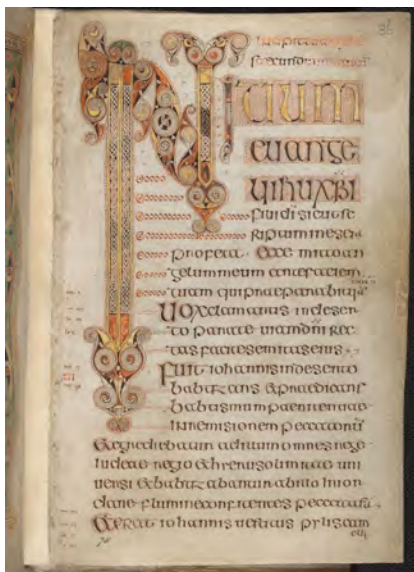 INI
TIUM
euange
lii ihu xpi
fili di sicut sc
riptum in
profeta Ecce mitto an
gelum meum ante faciem
tuam qui praeparabit
Uox clamantis in deser
to parate uiam dni rec
tas facite semitas eius
Fuit iohannis in deserto
babtizans & praedicans
babtismum paenitentiae
in remisionem peccatorum
& egrediebatur ad illum omnes
iudeae regio & uni
uersi & babtizabantur ab illo in ior
dane flumine confitentes peccata sua
& erat iohannis uestitus pylis cam